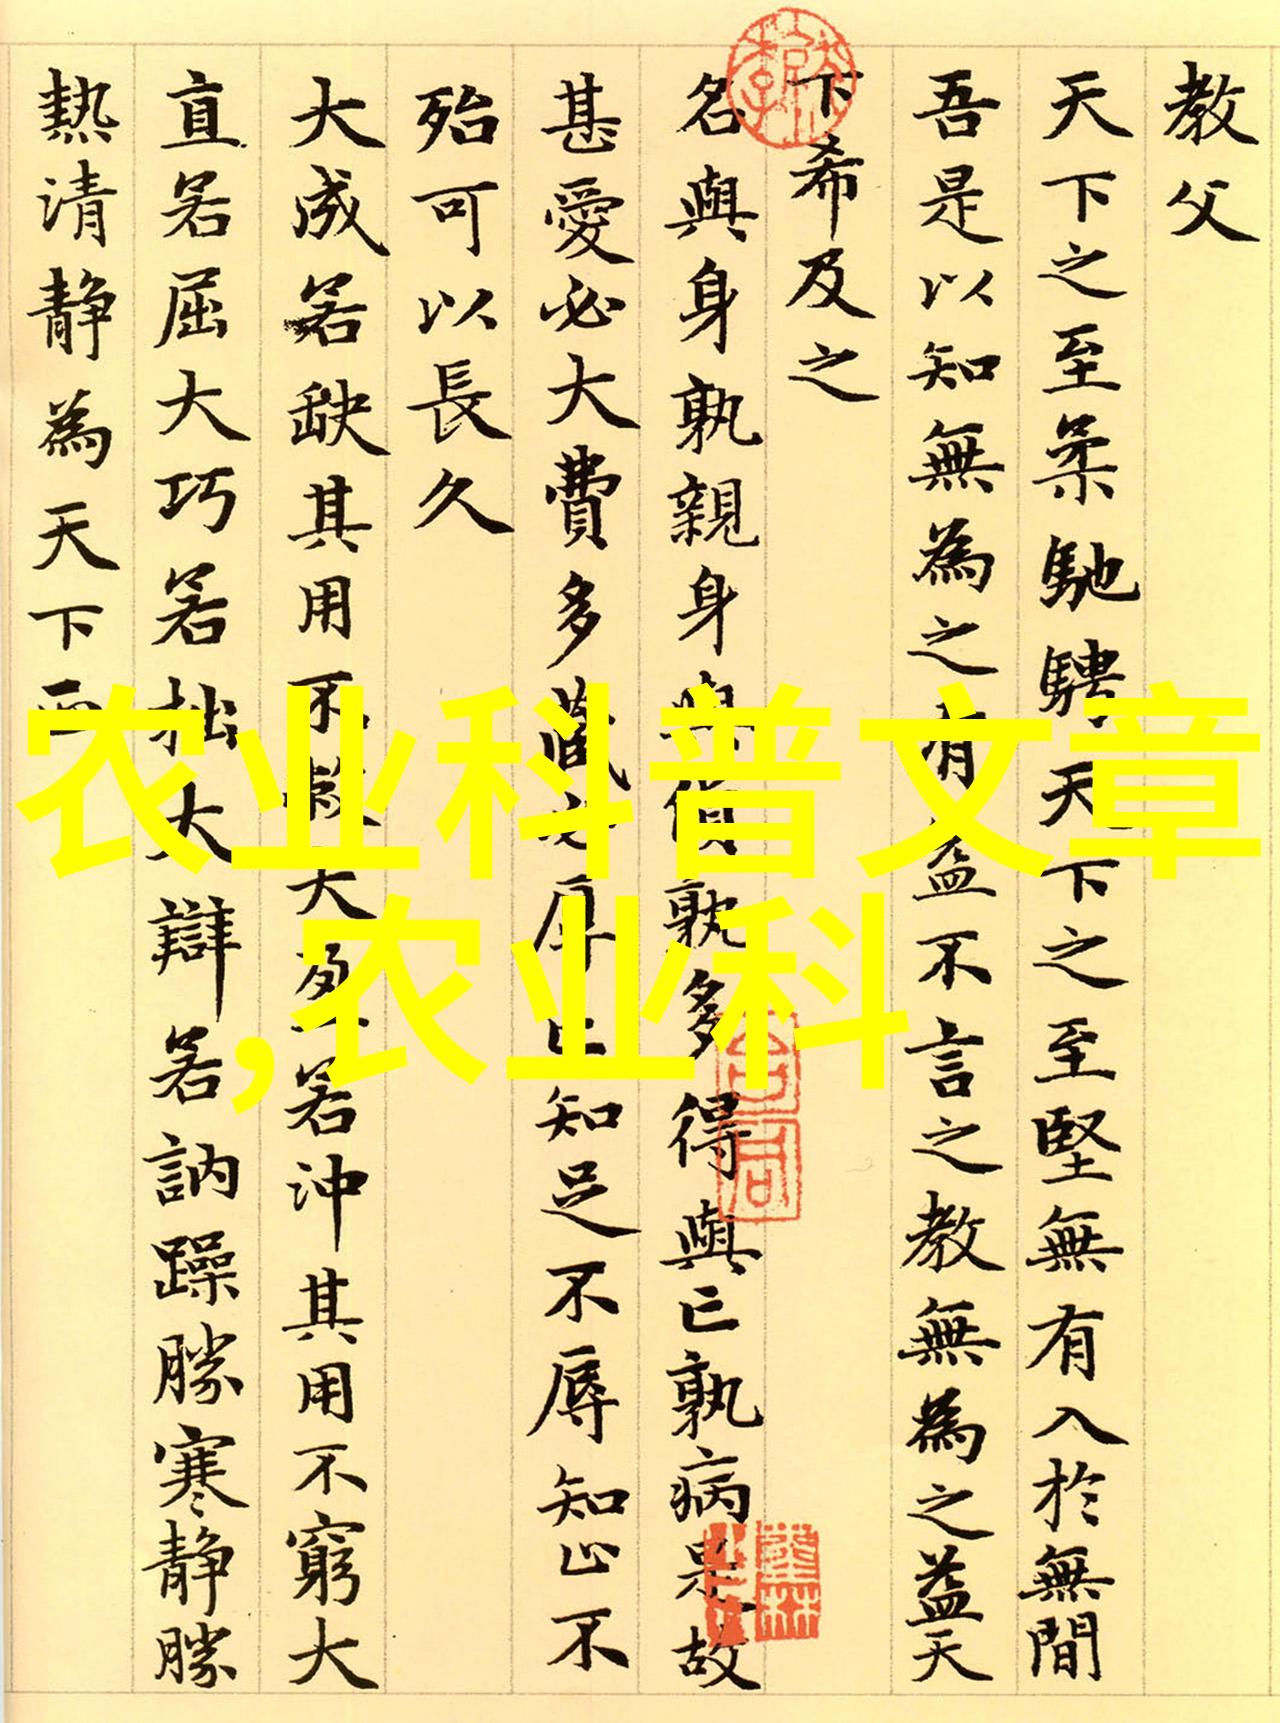 教父
天下之至柔馳騁天下之至堅無有入於無間
吾是以知無為之有益不言之教無為之益天
下希及之
名與身孰親身與貨孰多得與亡孰病是故
甚愛必大費多藏必厚亡知足不辱知止不
殆可以長久
大成若缺其用不敝大盈若沖其用不窮大
直若屈大巧若拙大辯若訥躁勝寒靜勝
熱清靜為天下正
农业科普文章
,农业科